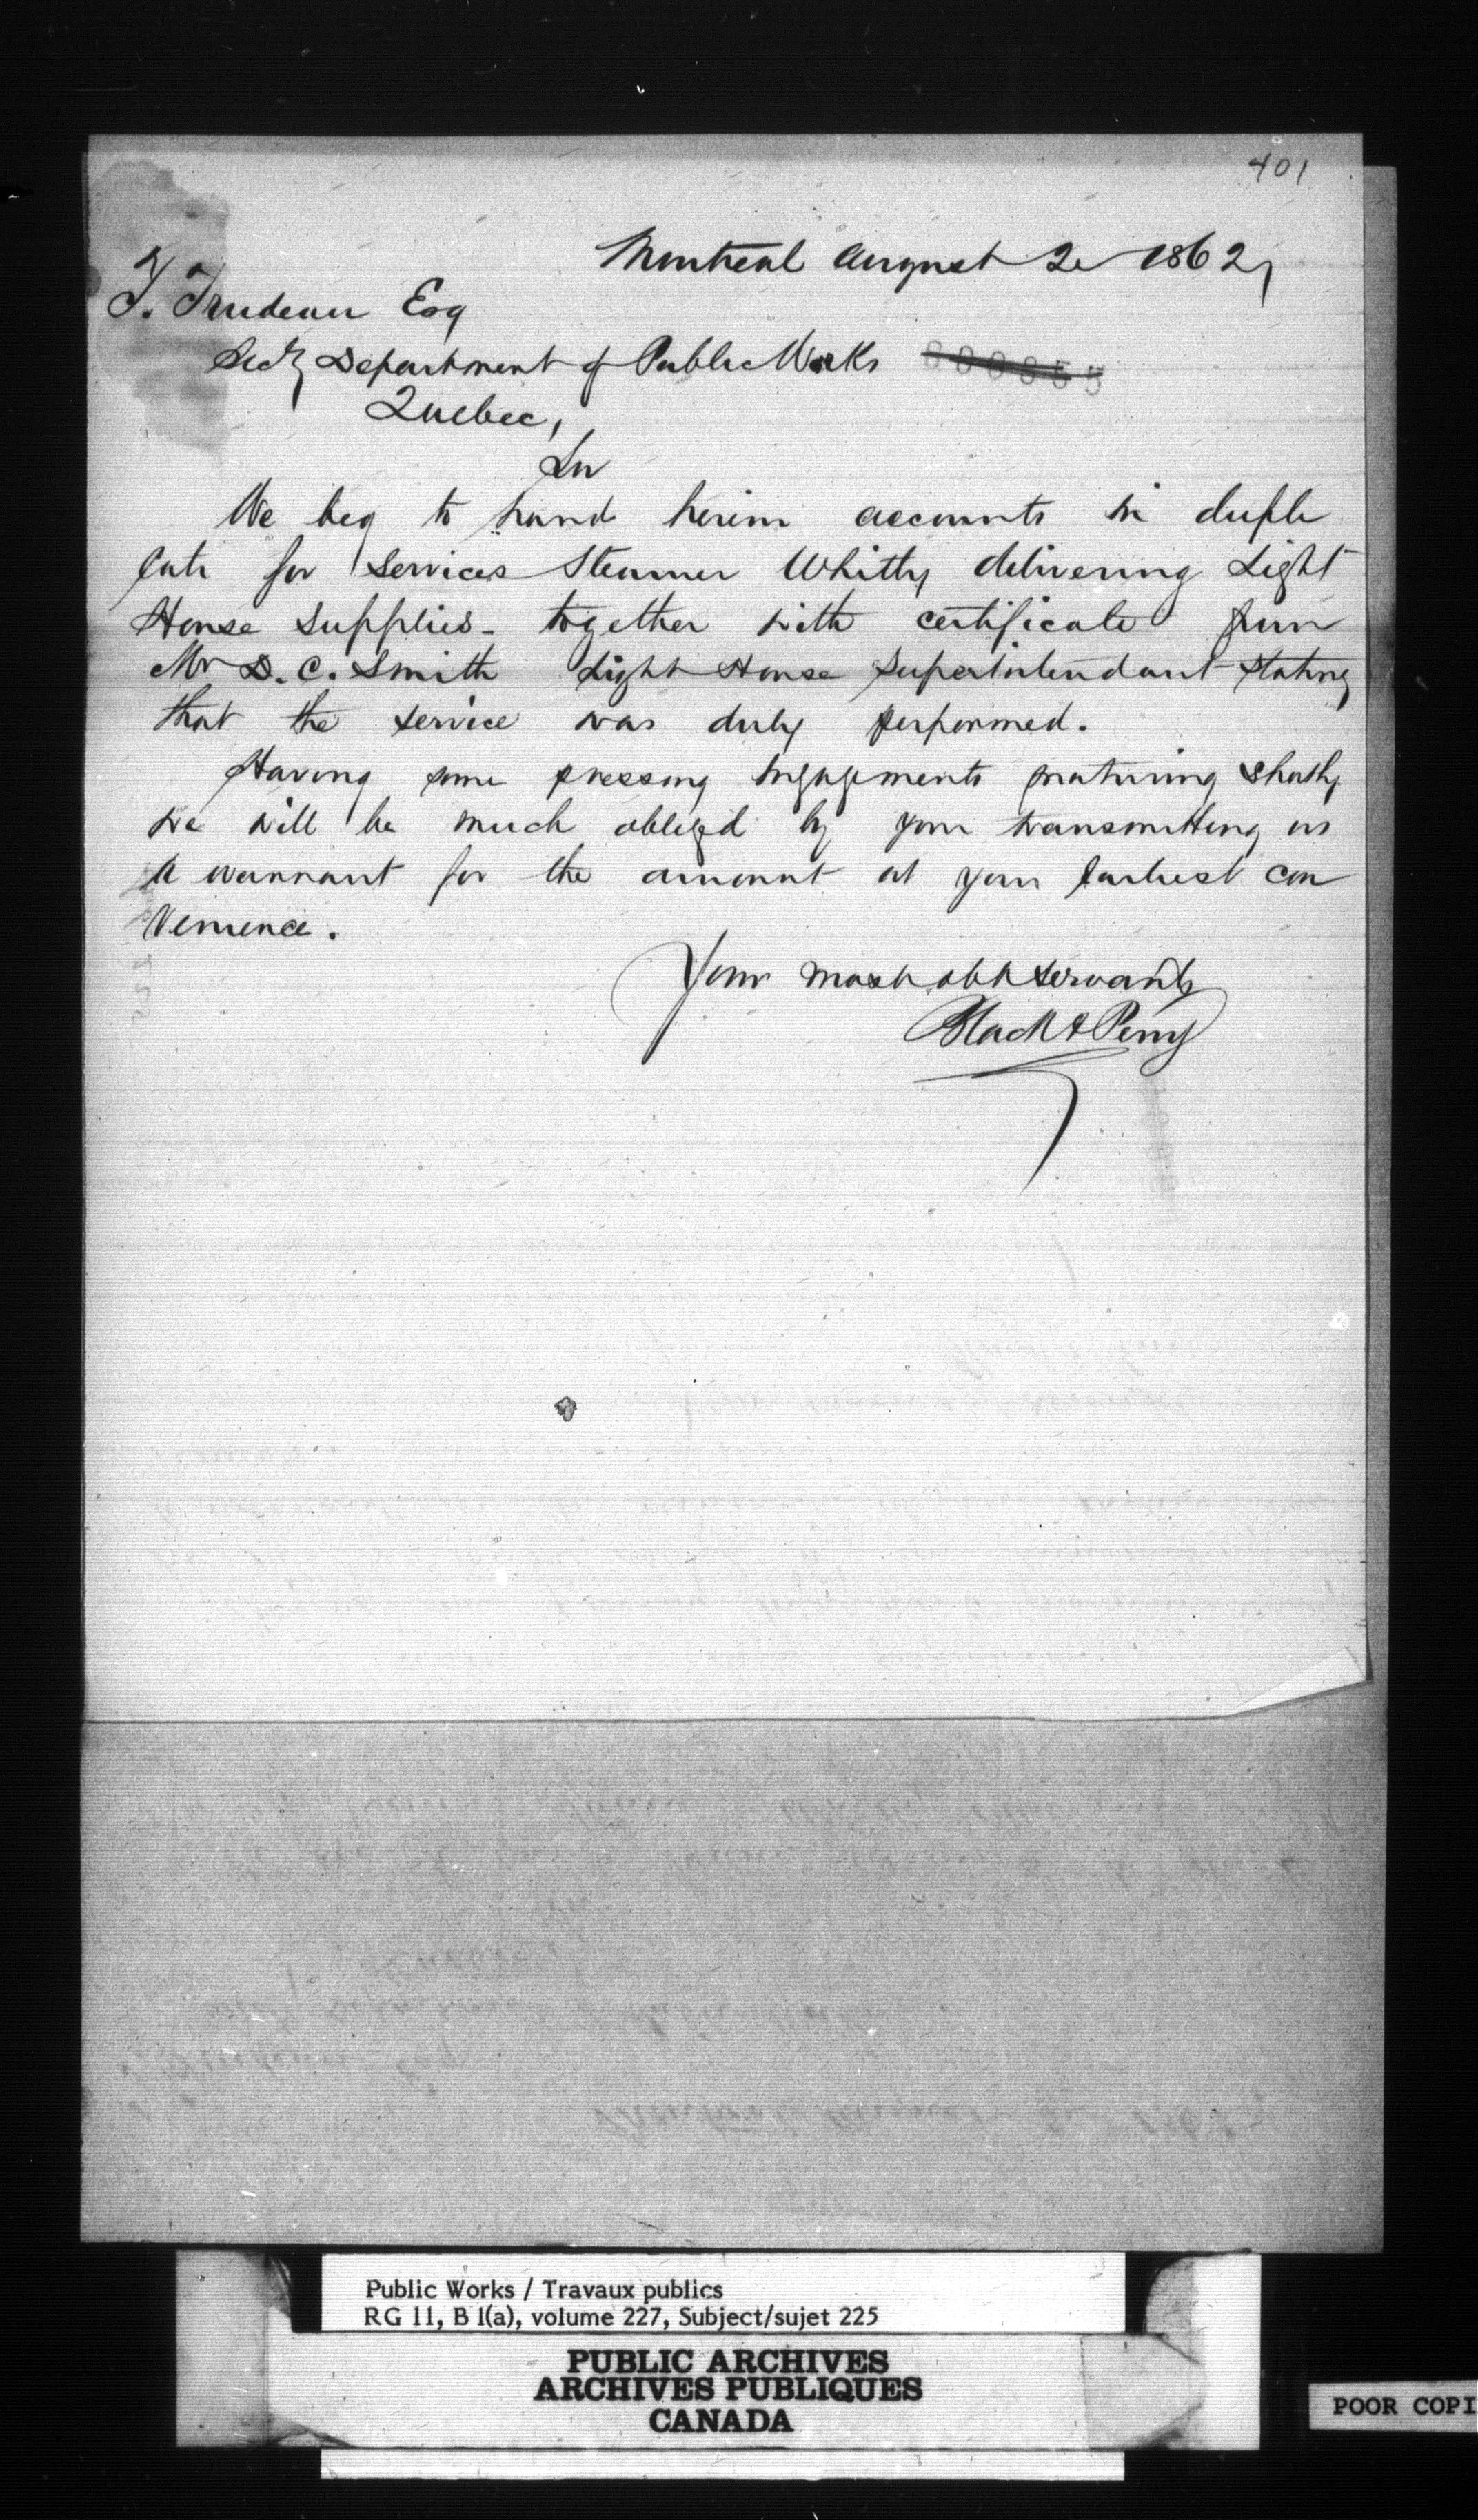 401
Montreal August 2 1862
T. Trudeau Esq
Secy Department of Public Works
Quebec,
Sir
We beg to hand herein accounts in dupli
cate for services Steamer Whitby delivering Light
House Supplies - together with certificate from
Mr D. C. Smith Light House Superintendant stating
that the service was duly performed.
Having some pressing engagements maturing shortly
we will be much obliged by your transmitting us
a warrant for the amount at your earliest con
venience.
Your most obt servants
Black & Perry
Public Works / Travaux publics
RG 11, B 1(a), volume 227, Subject/sujet 225
PUBLIC ARCHIVES
ARCHIVES PUBLIQUES
CANADA
POOR COPI